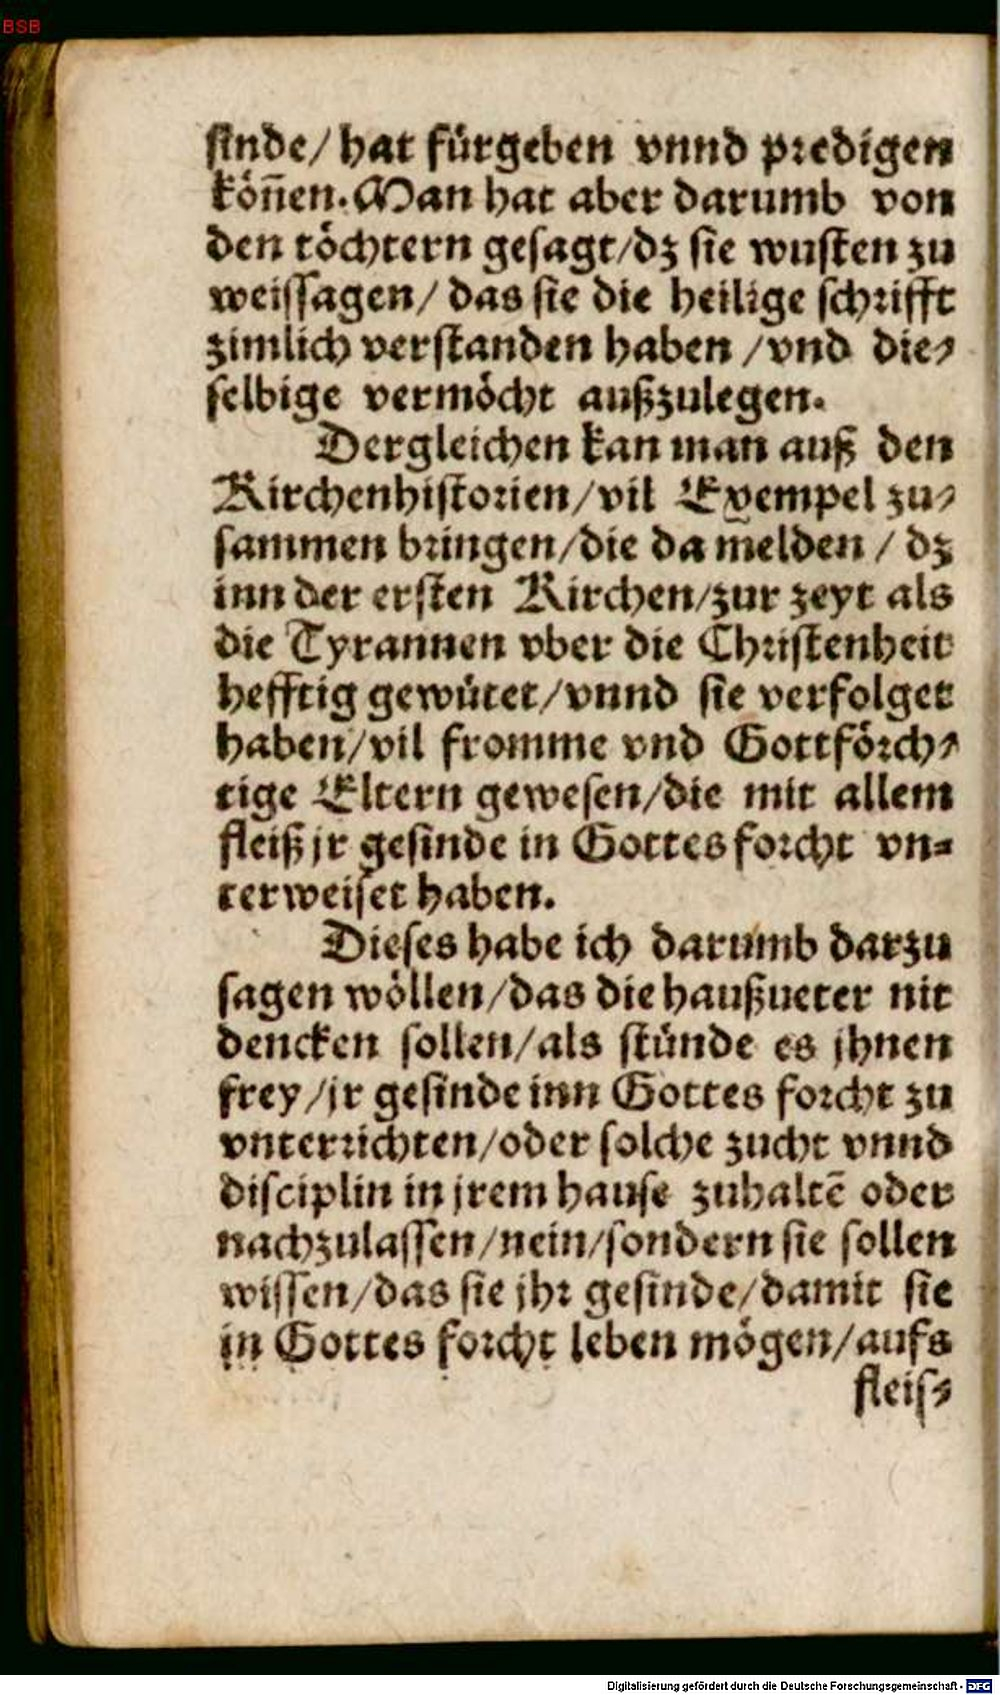 BSB
sinde/ hat fürgeben vnnd predigen
köñen. Man hat aber darumb von
den töchtern gesagt/dz sie wusten zu
weissagen/ das sie die heilige schrifft
zimlich verstanden haben /vnd die-
selbige vermöcht außzulegen.
Dergleichen kan man auß den
Kirchenhistorien/vil Exempel zu-
sammen bringen/die da melden / dz
inn der ersten Kirchen/zur zeyt als
die Tyrannen vber die Christenheit
hefftig gewütet/vnnd sie verfolget
haben/vil fromme vnd Gottförch-
tige Eltern gewesen/die mit allem
fleiß jr gesinde in Gottes forcht vn-
terweiset haben.
Dieses habe ich darumb darzu
sagen wöllen/das die haußueter nit
dencken sollen/als stünde es jhnen
frey/jr gesinde inn Gottes forcht zu
vnterrichten/oder solche zucht vnnd
disciplin in jrem hause zuhaltē oder
nachzulassen/nein/sondern sie sollen
wissen/das sie jhr gesinde/damit sie
in Gottes forcht leben mögen/aufs
fleis-
Digitalisierung gefördert durch die Deutsche Forschungsgemeinschaft - DFG